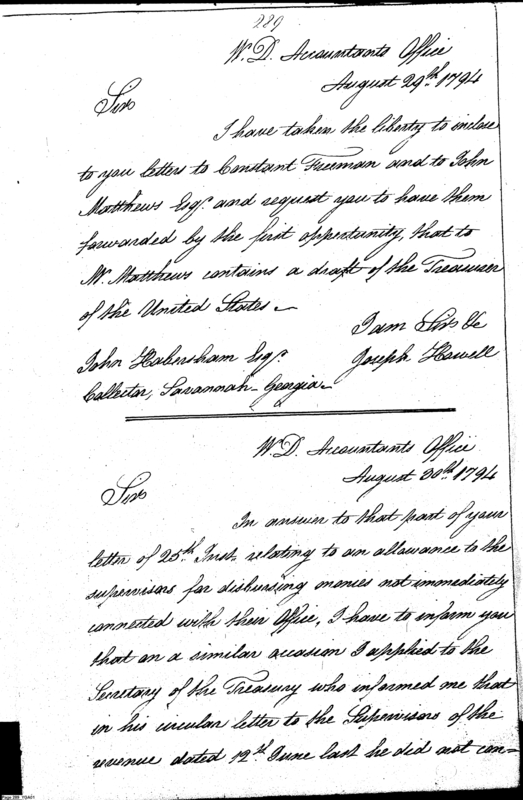 289
W. D. Accountants Office
August 29th. 1794
Sir
I have taken the liberty to inclose
to you letters to Constant Freeman and to John
Matthews Esqr. and request you to have them
forwarded by the first oppertunity, that to
Mr. Matthews contains a draft of the Treasurer
of the United States.
I am Sir &c
John Habersham Esqr.
Joseph Howell
Collector, Savannah Georgia
W. D. Accountants Office
August 30th. 1794
Sir
In answer to that part of your
letter of 25th. Inst. relating to an allowance to the
supervisors for disbursing monies not immediately
connected with their Office, I have to inform you
that on a similar occasion I applied to the
Secretary of the Treasury who informed me that
in his circular letter to the Supervisors of the
revenue dated 12th June last he did not con=